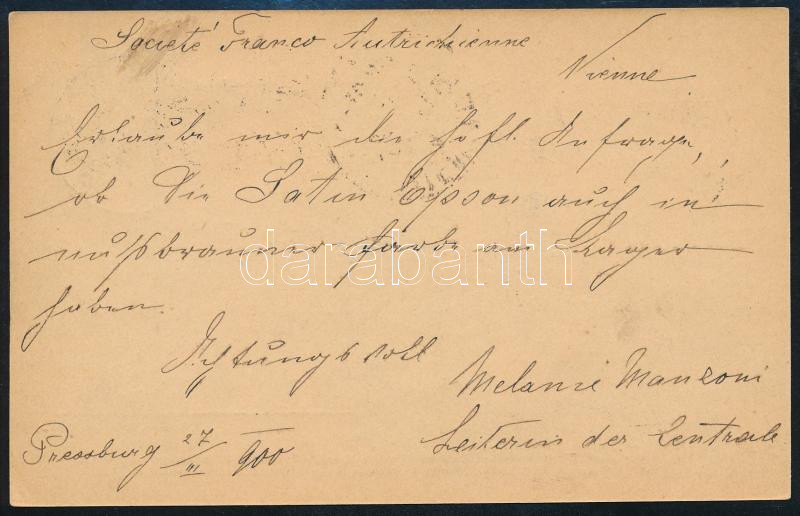 Societé Franco Autrichienne
Vienne.
Erlaube mir die höfl. Anfrage,
ob Sie Satin Epson auch in
nußbrauner Farbe am Lager
haben.
Achtungsvoll
Melanie Manzoni
Leiterin der Centrale
Pressburg 27/III 900
darabanth